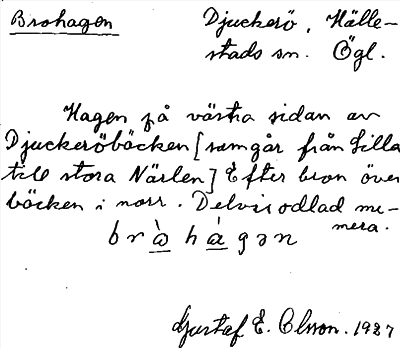 Brohagen
Djuckerö, Hälle-
stads sn. Ögl.
Hagen på västra sidan av
Djuckeröbäcken [som går från Lilla
till stora Närlen] Efter bron över
bäcken i norr. Delvis odlad nu-
mera.
brὰ hάgən
Gustaf E. Olsson. 1927